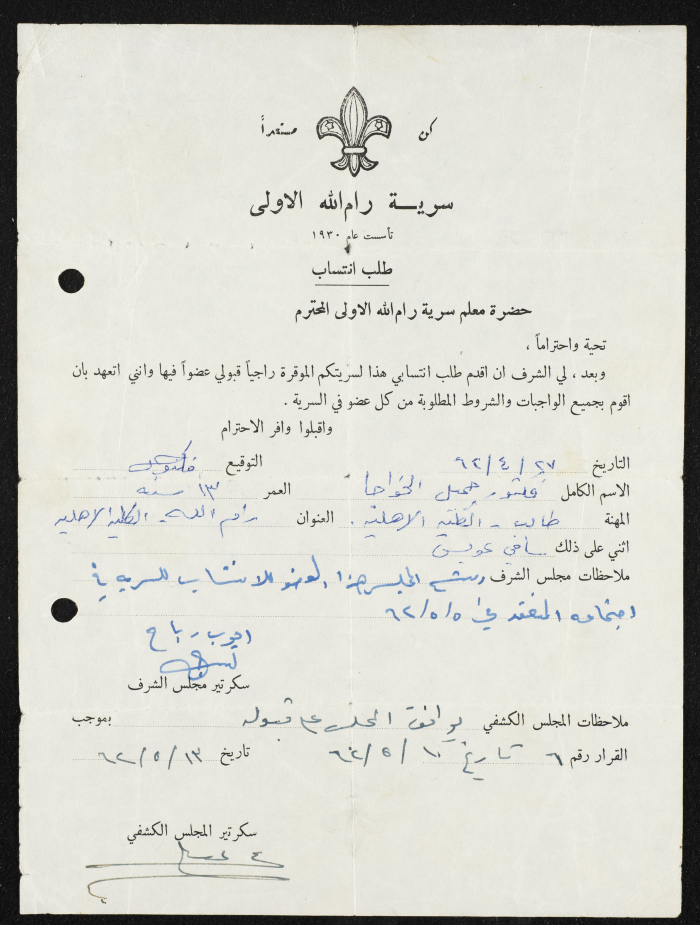 كن مستعداً
سرية رام الله الاولى
تأسست عام ١٩٣٠
طلب انتساب
حضرة معلم سرية رام الله الاولى المحترم
تحية واحتراماً ،
وبعد ، لي الشرف ان اقدم طلب انتسابي هذا لسريتكم الموقرة راجياً قبولي عضواً فيها وانني اتعهد بان
اقوم بجميع الواجبات والشروط المطلوبة من كل عضو في السرية .
واقبلوا وافر الاحترام
التاريخ ٢٧ / ٤ / ٦٢ التوقيع
الاسم الكامل فكتور جميل الخواجا العمر ١٣ سنه
المهنة طالب - الكليه الاهليه . العنوان رام الله - الكليه الاهليه
اثني على ذلك سامي عويس
ملاحظات مجلس الشرف رشح المجلس هذا العضو للانتساب للسريه في
اجتماعه المنعقد في ٥ / ٥ / ٦٢
ايوب رباح
سكرتير مجلس الشرف
ملاحظات المجلس الكشفي يوافق المجلس على قبوله بموجب
القرار رقم ٦ تاريخ ١٠ / ٥ / ٦٢ تاريخ ١٣ / ٥ / ٦٢
سكرتير المجلس الكشفي